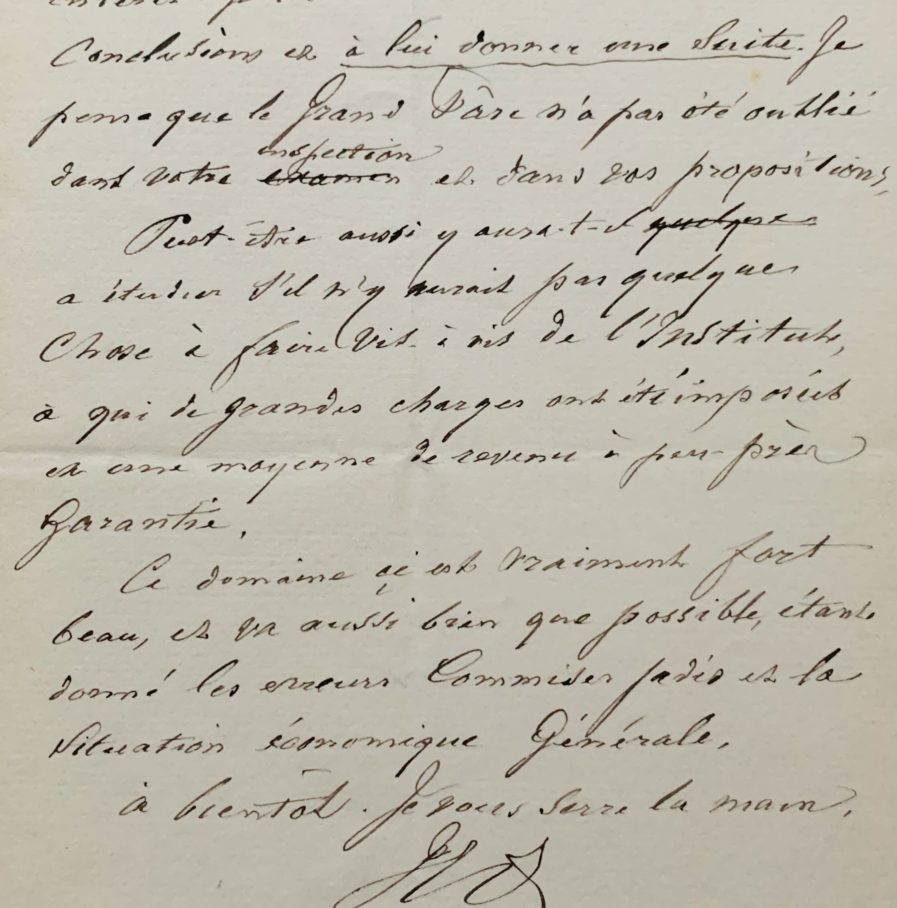 Conclusions et à lui donner une suite. Je
pense que le Grand Pâre n'a pas été oublié
dans votre examen inspection et dans vos propositions,
Peut-être aussi y aura-t-il quelque
a étudier s'il n'y aurait pas quelque
Chose à faire vis-à-vis de l'Institut,
à qui de grandes charges ont été imposées
et une moyenne de revenu à peu-près
Garantie.
Ce domaine çi est vraiment fort
beau, et va aussi bien que possible, étant
donné les erreurs Commises jadis et la
Situation économique Générale.
à bientôt. Je vous serre la main.